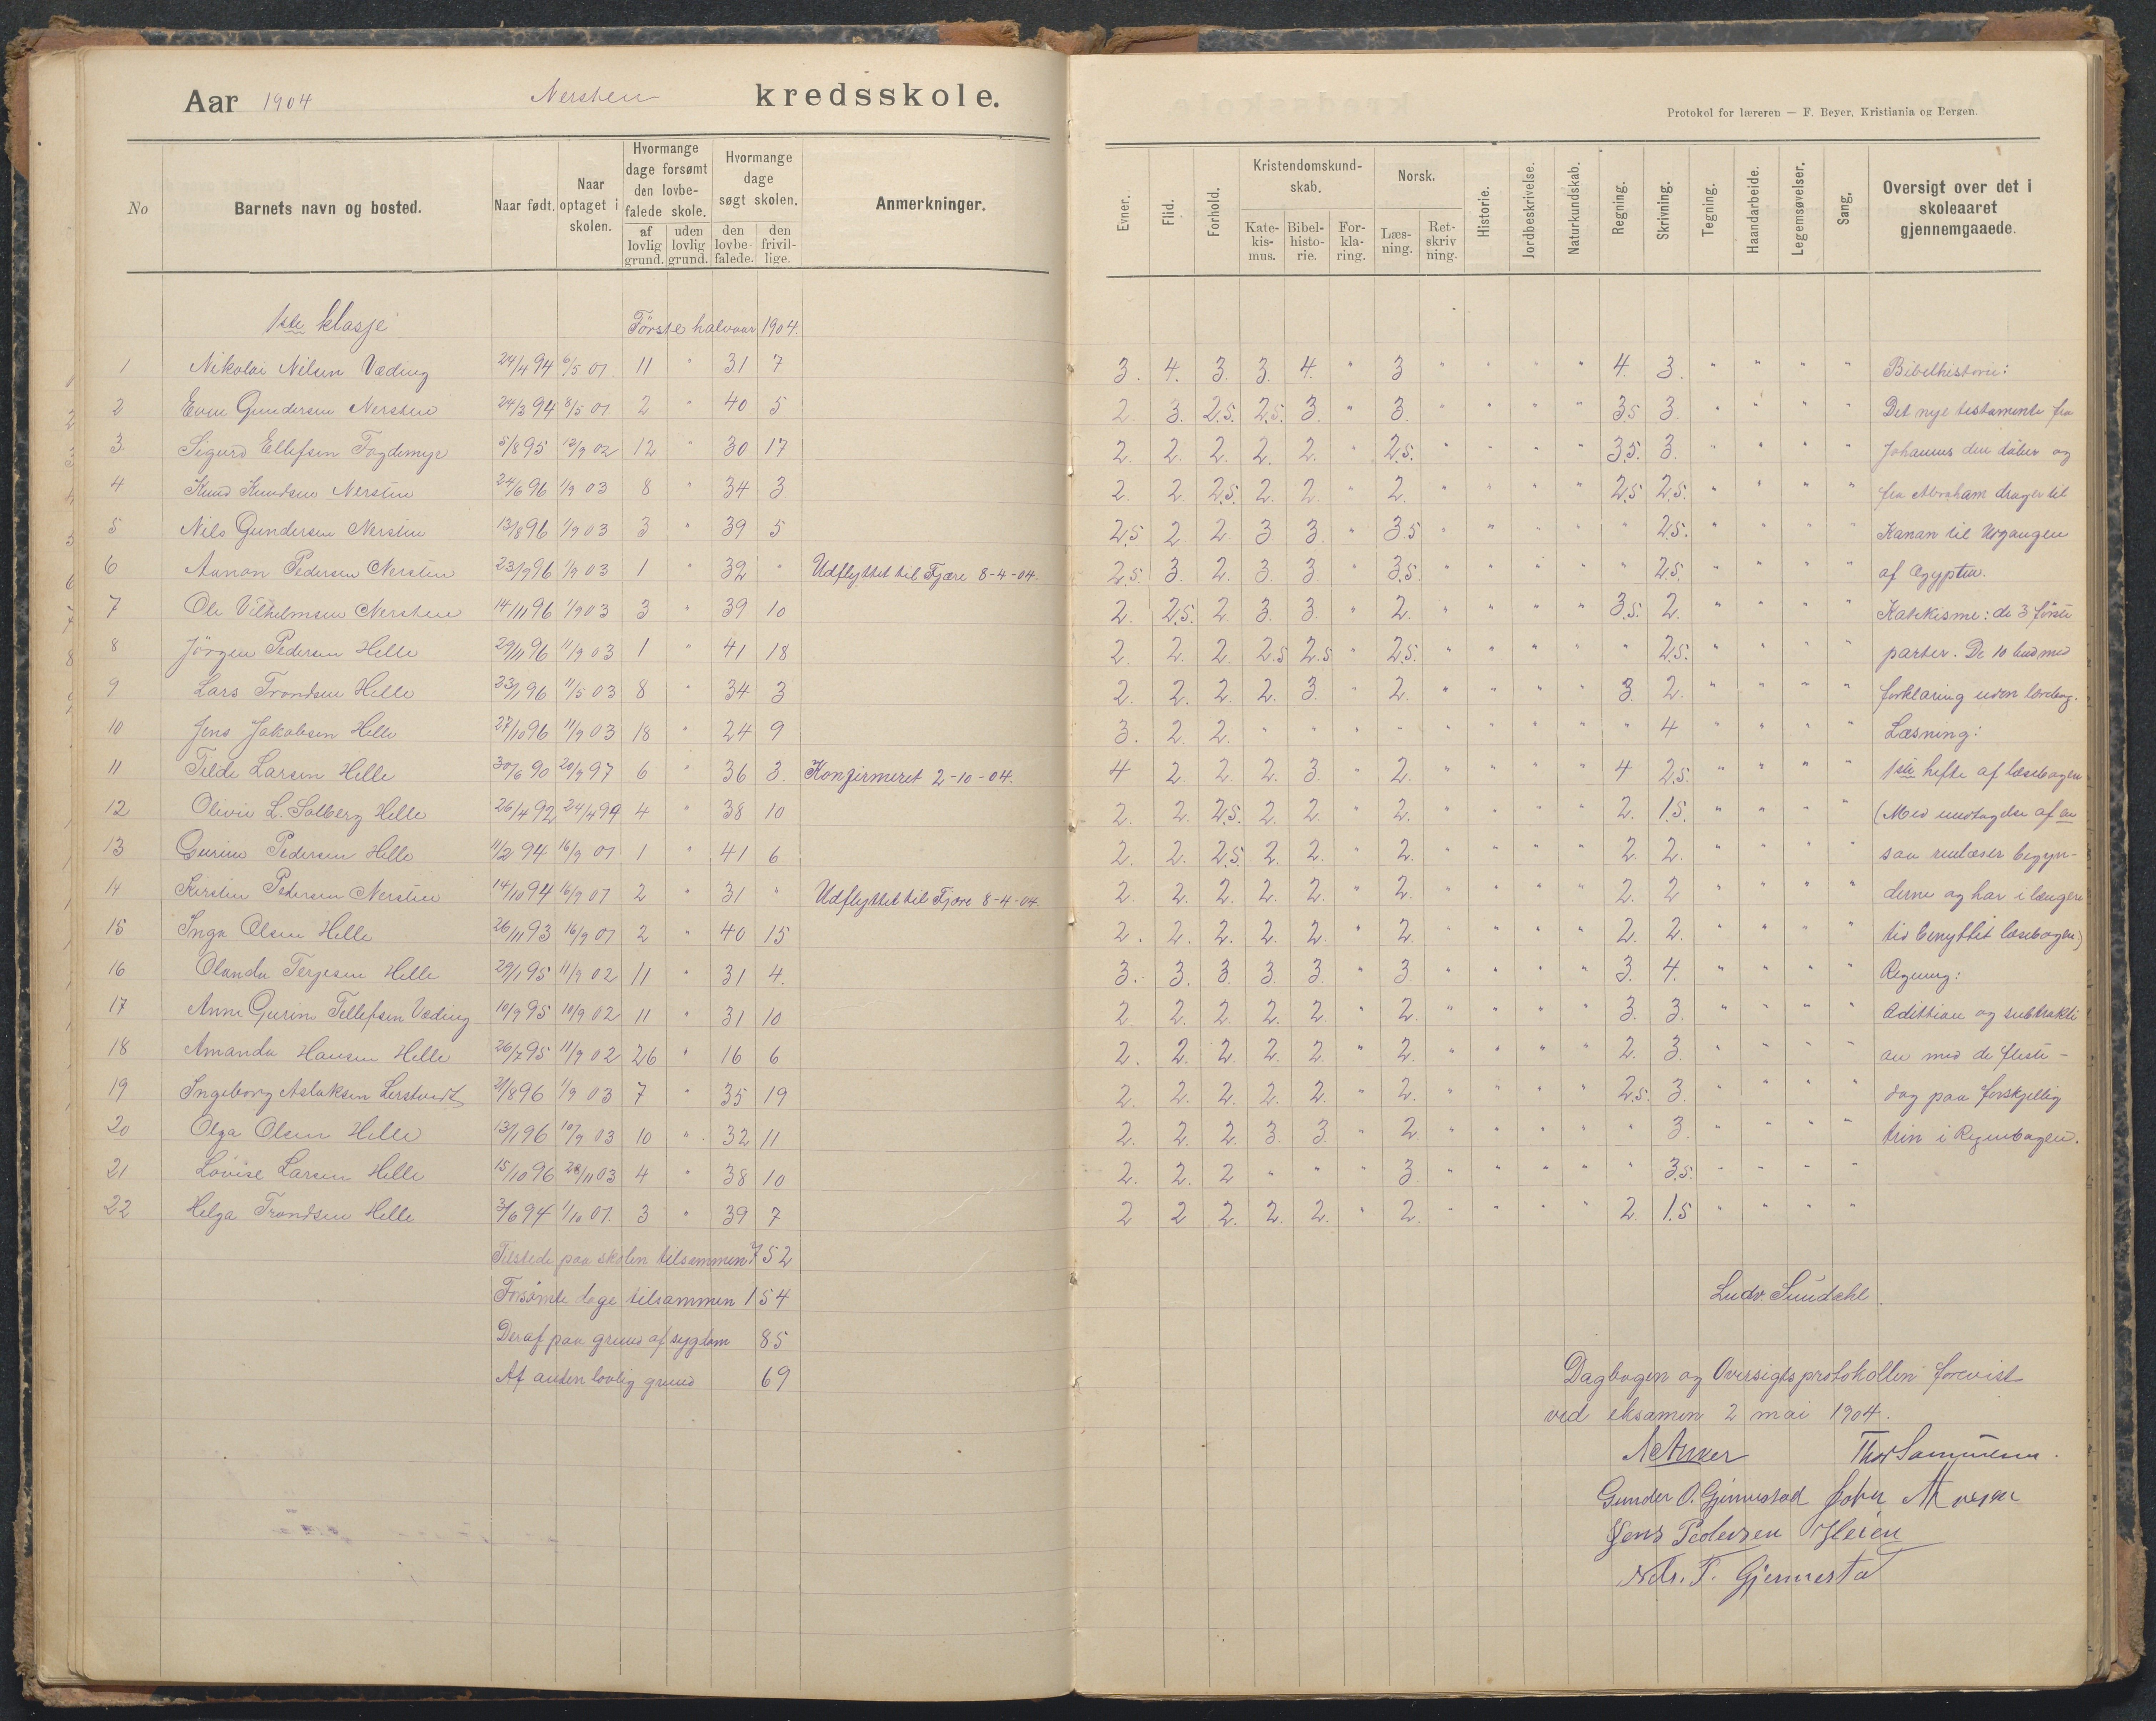 Aar 1904 Nersten kredsskole.
No
Barnets navn og bosted.
Naar født.
Naar optaget i skolen.
Hvormange dage forsømt den lovbefalede skole.
af lovlig grund.
uden lovlig grund.
Hvormange dage søgt skolen.
den lovbefalede.
den frivillige.
Anmerkninger.
1ste klasse Første halvaar 1904.
1 Nikolai Nilsen Væding 24/4 94 6/5 01. 11 " 31 7
2 Even Gundersen Nersten 24/3 94 8/5 01 2 " 40 5
3. Sigurd Ellefsen Fogdemyr 5/8 95 12/9 02 12 " 30 17
4 Knud Knudsen Nersten 24/6 96 1/9 03 8 " 34 3
5 Nils Gundersen Nersten 13/8 96 1/9 03 3 " 39 5
6 Aanon Pedersen Nersten 23/9 96 1/9 03 1 " 32 " Udflyttet til Fjære 8-4-04.
7 Ole Vilhelmsen Nersten 14/11 96 1/9 03 3 " 39 10
8 Jörgen Pedersen Helle 29/11 96 11/9 03 1 " 41 18
9 Lars Trondsen Helle 23/1 96 11/5 03 8 " 34 3
10 Jens Jakobsen Helle 27/10 96 11/9 03 18 " 24 9
11 Telde Larsen Helle 30/6 90 20/9 97 6 " 36 3. Konfirmeret 2-10-04.
12 Olivie L. Solberg Helle 26/4 92 24/4 99 4 " 38 10
13 Gurine Pedersen Helle 11/2 94 16/9 01 1 " 41 6
14 Kirstin Pedersen Nersten 14/10 94 16/9 01 2 " 31 " Udflyttet til Fjære 8-4-04.
15 Inga Olsen Helle 26/11 93 16/9 01 2 " 40 15
16 Olanda Terjesen Helle 29/1 95 11/9 02 11 " 31 4.
17 Anne Gurine Tellefsen Væding 10/9 95 10/9 02 11 " 31 10
18 Amanda Hansen Helle 26/7 95 11/9 02 26 " 16 6
19 Ingeborg Aslaksen Lerstvedt 21/8 96 1/9 03 7 " 35 19
20 Olga Olsen Helle 13/1 96 10/9 03 10 " 32 11
21 Lovise Larsen Helle 15/10 96 28/11 03 4 " 38 10
22 Helga Trondsen Helle 3/6 94 1/10 01. 3 " 39 7
Tilstede paa skolen tilsammen 752
Forsømte dage tilsammen 154
Deraf paa grund af sygdom 85
Af anden lovlig grund 69
Protokol for læreren — F. Beyer, Kristiania og Bergen.
Evner.
Flid.
Forhold.
Kristendomskundskab.
Katekismus.
Bibelhistorie.
Forklaring.
Norsk.
Læsning.
Retskrivning.
Historie.
Jordbeskrivelse.
Naturkundskab.
Regning.
Skrivning.
Tegning.
Haandarbeide.
Legemsøvelser.
Sang.
Oversigt over det i skoleaaret gjennemgaaede.
3. 4. 3. 3. 4. " 3 " " " " 4. 3. " " " " Bibelhistorie:
2. 3. 2.5. 2.5. 3. " 3. " " " " 3.5 3. " " " " Det nye testamente fra
2. 2. 2. 2. 2. " 2.5. " " " " 3.5. 3. " " " " Johannes den döber og
2. 2 2.5. 2. 2. " 2. " " " " 2.5 2.5. " " " " fra Abraham drager til
2.5 2 2. 3 3. " 3.5 " " " " " 2.5. " " " " Kanan til Udgangen
2.5. 3. 2. 3. 3. " 3.5. " " " " " 2.5. " " " " af Ægypten.
2. 2.5. 2 3 3. " 2. " " " " 3.5. 2. " " " " Katekisme: de 3 første
2. 2. 2. 2.5 2.5 " 2.5. " " " " " 2.5. " " " " parter. De 10 bud med
2. 2. 2. 2. 3. " 2. " " " " 3. 2. " " " " forklaring uden
3. 2. 2. " " " " " " " " " 4 " " " " Læsning:
4 2. 2. 2. 3. " 2. " " " " 4 2.5. " " " " 1ste hefte af læsebogen
2. 2. 2.5. 2. 2. " 2. " " " " 2. 1.5. " " " " (Med undtagelse af en
2. 2. 2.5 2. 2. " 2. " " " " 2 2. " " " " begyn-
2. 2. 2. 2. 2. " 2. " " " " 2. 2 " " " " derne og har i længere
2. 2. 2. 2. 2. " 2. " " " " 2. 2. " " " " tid benyttet læsebogen)
3. 3. 3. 3. 3. " 3 " " " " 3. 4. " " " " Regning:
2 2. 2. 2. 2. " 2. " " " " 3 3. " " " " Adittion og subtrakti
2. 2. 2. 2. 2. " 2. " " " " 2. 3. " " " " on med de fleste -
2. 2. 2. 2. 2. " 2. " " " " 2.5. 3. " " " " dog paa forskjellig
2. 2. 2. 3. 3. " 2. " " " " " 3. " " " " trin i Regnebogen.
2. 2. 2 " " " 3. " " " " " 3.5. " " " "
2 2 2. 2. 2. " 2. " " " " 2. 1.5 " " " "
Ludv. Sundahl.
Dagbogen og Oversigtsprotokollen forevist
ved eksamen 2 mai 1904.
Gunder O. Gjennestad
Jens Pedersen Heien
Nils. T. Gjennestad